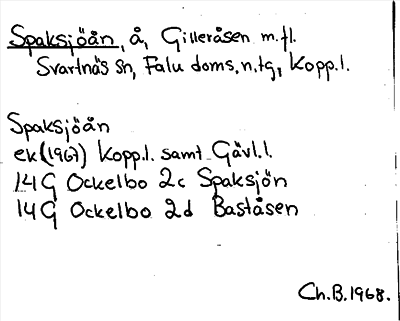 Spaksjöån, å, Gilleråsen m.fl.
Svartnäs sn, Falu doms.n.tg, Kopp.l.
Spaksjöån
ek (1967) Kopp.l. samt Gävl.l.
14G Ockelbo 2c Spaksjön
14G Ockelbo 2d Baståsen
Ch.B.1968.